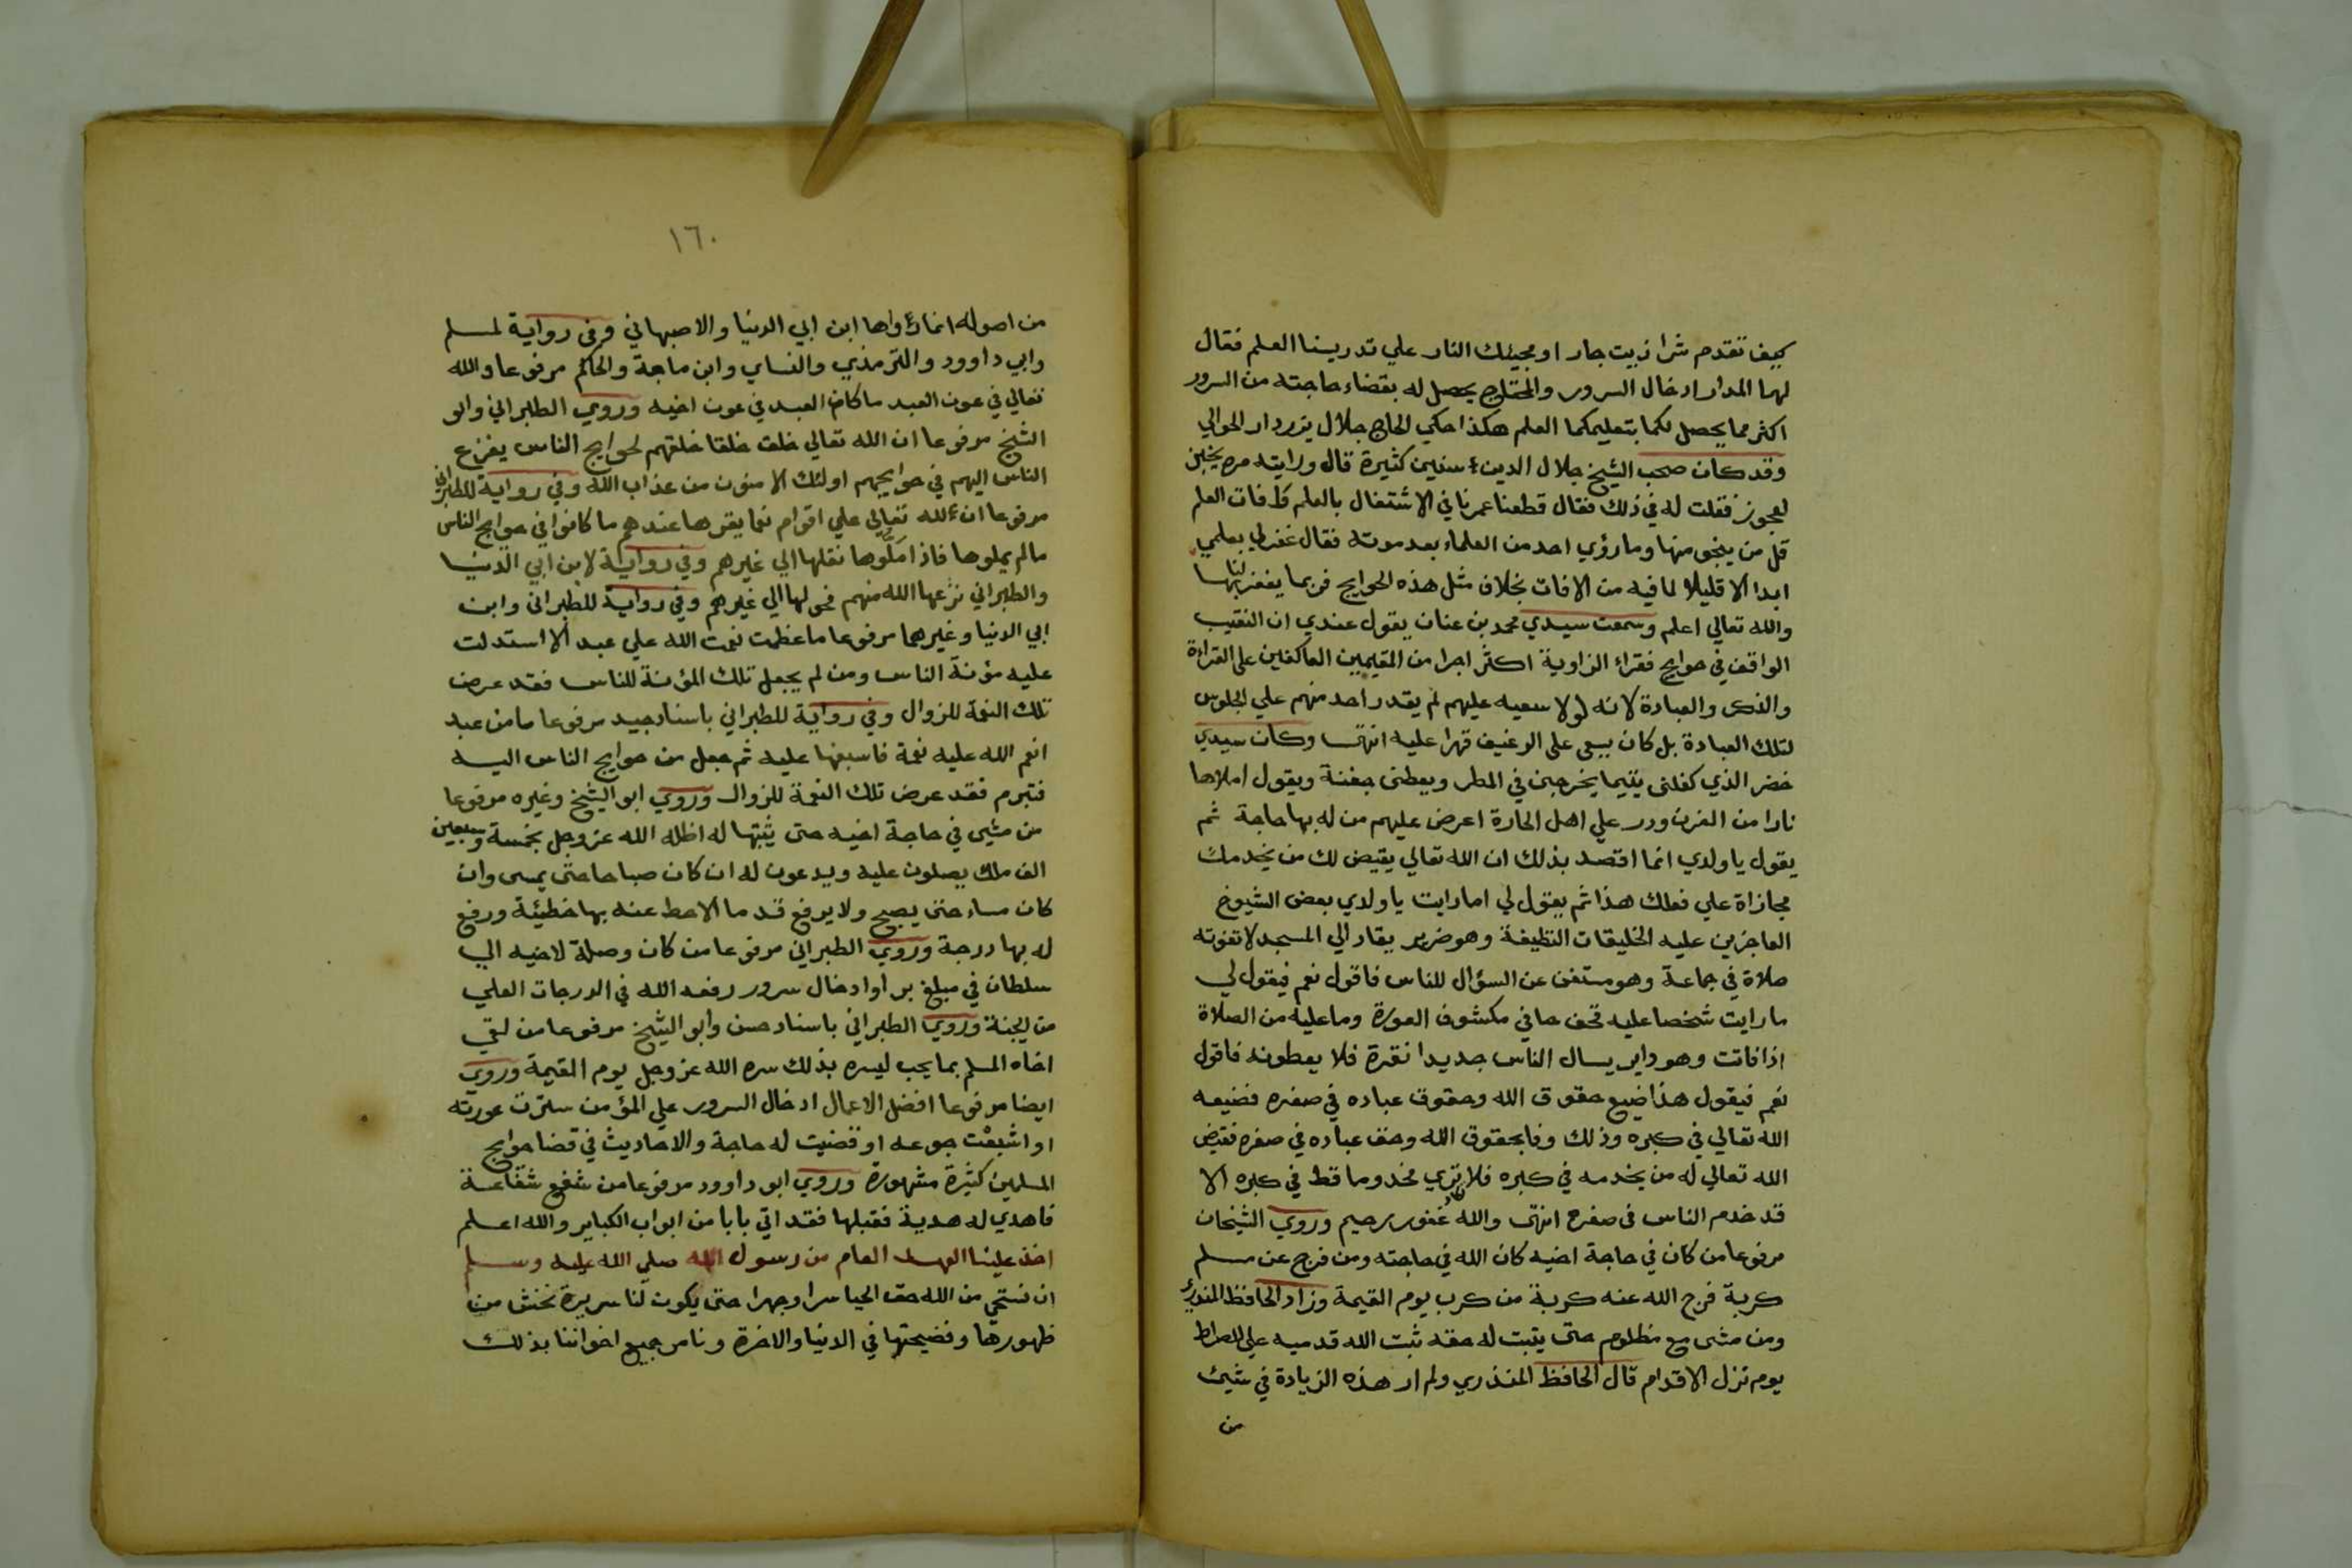 كيف تقدم شرا زبيت حار او مجيئك النار علي تدريسنا العلم فقال
لهما المدار ادخال السرور والمحتاج يحصل له بقضاء حاجته من السرور
اكثر مما يحصل لكما بتعليمكما العلم هكذا حكي الحاج جلال بزردار الحوالي
وقد كان صحب الشيخ جلال الدين سنين كثيرة قال ورايته مره يخبز
لعجوز فقلت له في ذلك فقال قطعنا عمرنا في الاشتغال بالعلم فافات العلم
قل من ينجو منها وما رؤي احد من العلماء بعد موته فقال غفرلي بعلمي
ابدا الا قليلا لما فيه من الافات بخلاف مثل هذه الحوايج فربما يغفر لنا بها
والله تعالي اعلم وسمعت سيدي محمد بن عنان يقول عندي ان النقيب
الواقف في حوايج فقراء الزاوية اكثر اجرا من المقيمين العاكفين على القراءة
والذكر والعبادة لانه لولا سعيه عليهم لم يقدر احد منهم علي الجلوس
لتلك العبادة بل كان يسعى على الرغيف قهرا عليه انتهى وكان سيدي
خضر الذي كفلنى يتيما يخرجنى في المطر ويعطنى جفنة ويقول املاها
نارا من الفرن ودر علي اهل الحارة اعرض عليهم من له بها حاجة ثم
يقول يا ولدي انما اقصد بذلك ان الله تعالي يقيض لك من يخدمك
مجازاة علي فعلك هذا ثم يقول لي اما رايت يا ولدي بعض الشيوخ
العاجزين عليه الخليقات النظيفة وهو ضرير يقاد الي المسجد لا تفوته
صلاة في جماعة وهو مستغن عن السؤال للناس فاقول نعم فيقول لي
ما رايت شخصا عليه قحف حافي مكشوف العورة وما عليه من الصلاة
اذا فاتت وهو داير يسال الناس جديدا نقرة فلا يعطونه فاقول
نعم فيقول هذا ضيع حقوق الله وحقوق عباده في صغره فضيعه
الله تعالي في كبره وذلك وفا بحقوق الله وحق عباده في صغره فقيض
الله تعالي له من يخدمه في كبره فلا ترى مخدوما قط في كبره الا
قد خدم الناس في صغره انتهى والله غفور رحيم وروي الشيخان
مرفوعا من كان في حاجة اخيه كان الله في حاجته ومن فرج عن مسلم
كربة فرج الله عنه كربة من كرب يوم القيمة وزاد الحافظ المنذري
ومن مشى مع مظلوم حتى يثبت له حقه ثبت الله قدميه علي الصراط
يوم تزل الاقدام قال الحافظ المنذري ولم ار هذه الزيادة في شيئ
من
١٦٠
من اصوله انما رواها ابن ابي الدنيا والاصبهاني وفي رواية لمسلم
وابي داوود والترمذي والنساي وابن ماجة والحاكم مرفوعا والله
تعالي في عون العبد ما كان العبد في عون اخيه وروي الطبراني وابو
الشيخ مرفوعا ان الله تعالي خلق خلقا خلقهم لحوايج الناس يفزع
الناس اليهم في حوايجهم اولئك الامنون من عذاب الله وفي رواية للطبراني
مرفوعا ان لله تعالي علي اقوام نعما يقرها عندهم ما كانوا في حوايج الناس
مالم يملوها فاذا ملوها نقلها الي غيرهم وفي رواية لابن ابي الدنيا
والطبراني نزعها الله منهم فحولها الي غيرهم وفي رواية للطبراني وابن
ابي الدنيا وغيرهما مرفوعا ما عظمت نعمت الله علي عبد الا استدلت
عليه مؤنة الناس ومن لم يجعل تلك المؤنة للناس فقد عرض
تلك النعمة للزوال وفي رواية للطبراني باسناد جيد مرفوعا ما من عبد
انعم الله عليه نعمة فاسبغها عليه ثم جعل من حوايج الناس اليه
فتبرم فقد عرض تلك النعمة للزوال وروي ابو الشيخ وغيره مرفوعا
من مشى في حاجة اخيه حتى يثبتها له اظله الله عز وجل بخمسة وسبعين
الف ملك يصلون عليه ويدعون له ان كان صباحا حتى يمسى وان
كان مساء حتى يصبح ولا يرفع قدما الا حط عنه بها خطيئة ورفع
له بها درجة وروي الطبراني مرفوعا من كان وصلة لاخيه الي
سلطان في مبلغ بر او ادخال سرور رفعه الله في الدرجات العلي
من الجنة وروي الطبراني باسناد حسن وابو الشيخ مرفوعا من لقي
اخاه المسلم بما يحب ليسره بذلك سره الله عز وجل يوم القيمة وروي
ايضا مرفوعا افضل الاعمال ادخال السرور علي المؤمن سترت عورته
او اشبعت جوعه او قضيت له حاجة والاحاديث في قضا حوايج
المسلمين كثيرة مشهورة وروي ابو داوود مرفوعا من شفع شفاعة
فاهدي له هدية فقبلها فقد اتي بابا من ابواب الكباير والله اعلم
اخذ علينا العهد العام من رسول الله صلي الله عليه وسلم
ان نستحي من الله حق الحيا سرا وجهرا حتى يكون لنا سريرة نخش من
ظهورها وفضيحتها في الدنيا والاخرة ونامر جميع اخواننا بذلك